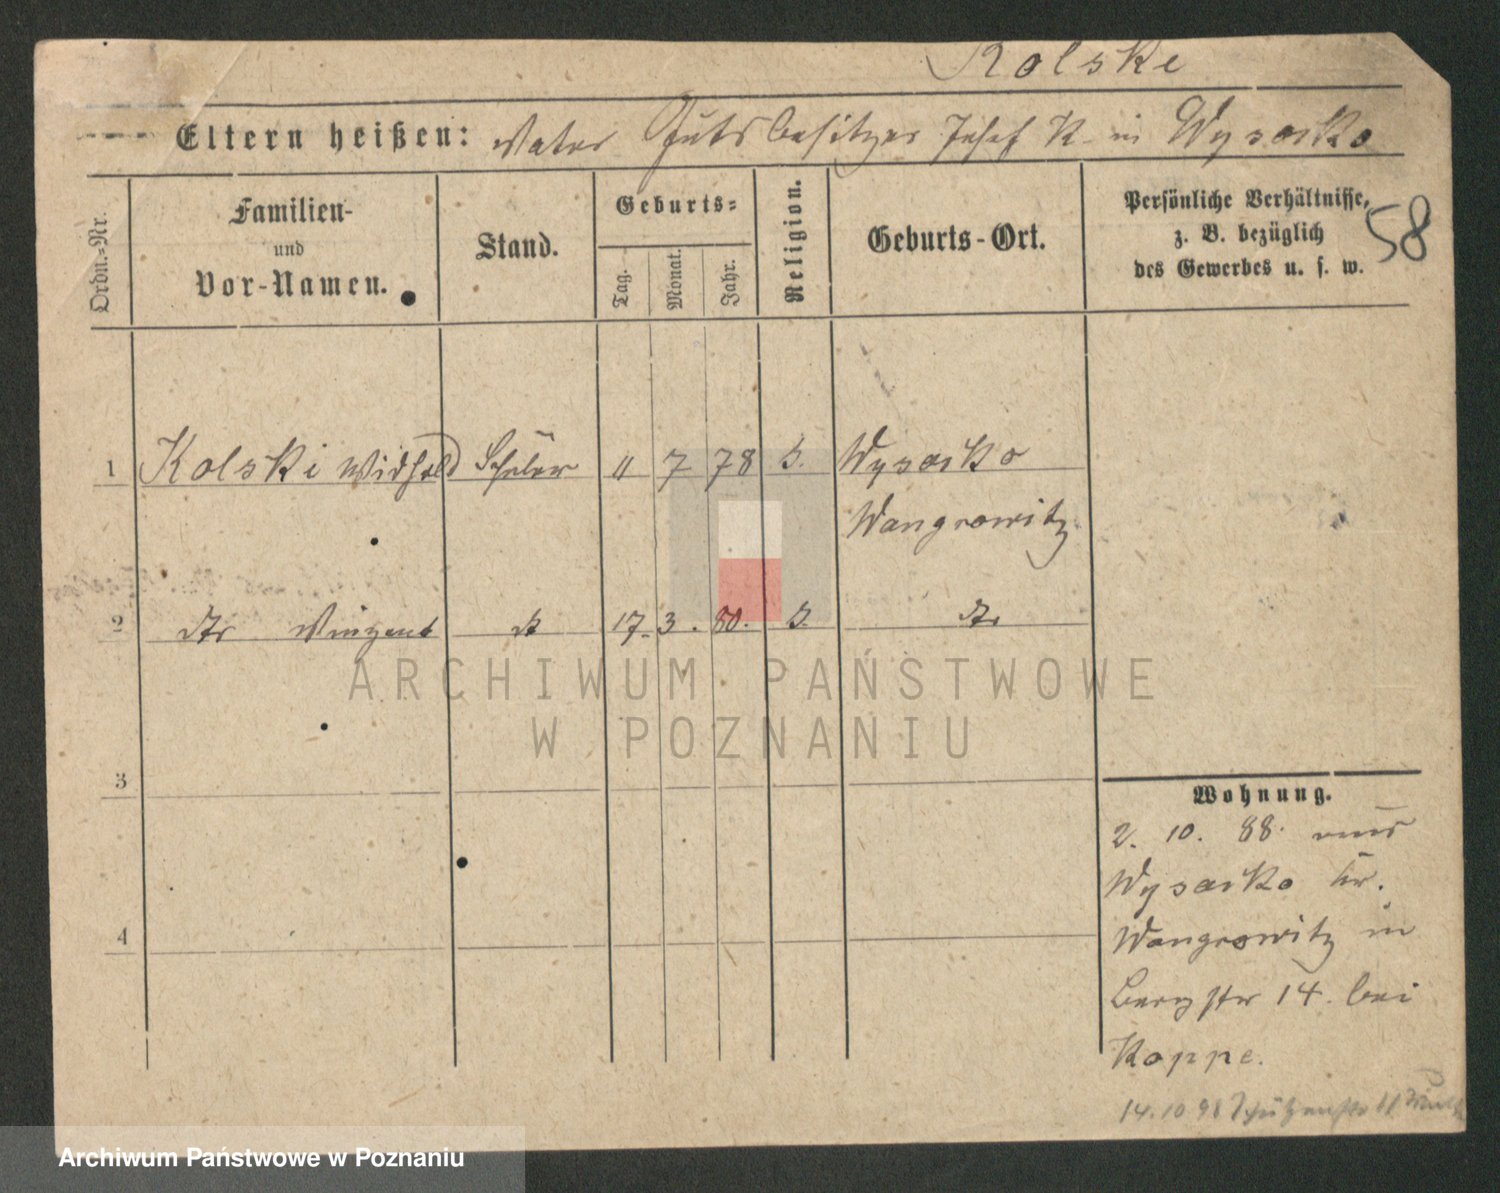 Kolske
Eltern heißen: Vater Gutsbesitzer Josef K. in Wysocko
Ordn.-Nr.
Familien-
und
Vor-Namen.
Stand.
Geburts-
Tag.
Monat.
Jahr.
Religion.
Geburts-Ort.
Persönliche Verhältnisse,
z. B. bezüglich
des Gewerbes u. s. w.
58
1 Kolski Schüler 11 7 78 Wysocko
Wangrowitz
2 dto Vinzent dt 17. 3. 80. dto
3
4
Wohnung.
2. 10. 88. aus
Wysocko Kr.
Wongrowitz in
Bergstr 14. bei
Koppe.
14.10 Schützenstr 11
ARCHIWUM PAŃSTWOWE
W POZNANIU
Archiwum Państwowe w Poznaniu